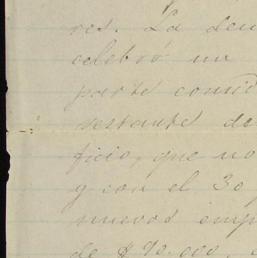 res. La deu
celebró un
parte consid
restante de
ficio, que no
y con el 30
nuevos emp
de $ 90.000,